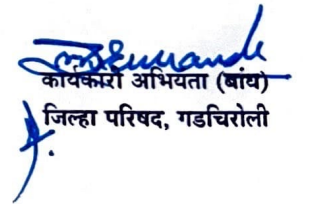 कार्यकारी अभियंता (बांध)
जिल्हा परिषद, गडचिरोली